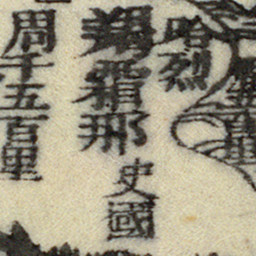 哈烈
羯霜那
史國
周千五百里